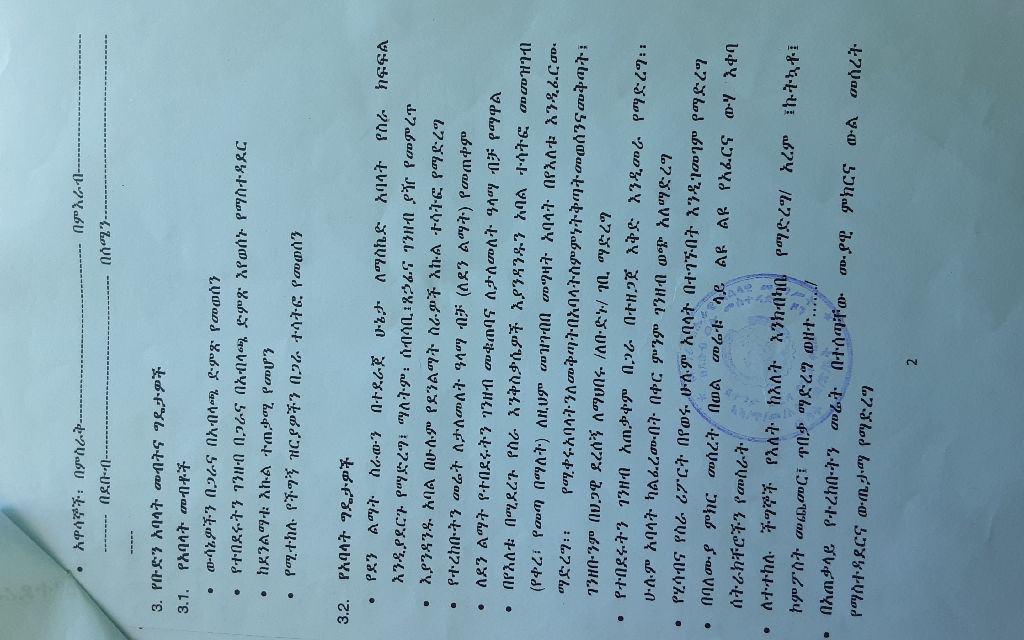 • አዋሳኞች፡ በምስራቅ---------------------------------- በምእራብ-----------------------
-------- በደቡብ------------------------------------ በሰሜን-----------------------
------
3. የቡድን አባላት መብትና ግዴታዎች
3.1. የአባላት መብቶች
• ውሳኔዎችን በጋራና በአብላጫ ድምጽ የመወሰን
• የተበደሩትን ገንዘብ በጋራና በአብላጫ ድምጽ እየወሰኑ የማስተዳደር
• ከደንልማቱ እኩል ተጠቃሚ የመሆን
• የሚተከሉ የችግኝ ዝርያዎችን በጋራ ተሳትፎ የመወሰን
3.2. የአባላት ግዴታዎች
• የደን ልማት ስራውን በተደራጀ ሁኔታ ለማስኬድ አባላት የስራ ክፍፍል
እንዲያደርጉ የማድረግ፤ ማለትም፡ ሰብሳቢ፤ጸኃፊና ገንዘብ ያዥ የመምረጥ
• እያንዳንዱ አባል በሁሉም የደንልማት ስራዎች እኩል ተሳትፎ የማድረግ
• የተረከቡትን መሬት ለታለመለት ዓላማ ብቻ (ለደን ልማት) የመጠቀም
• ለደን ልማት የተበደሩትን ገንዘብ መቆጠብና ለታለመለት ዓላማ ብቻ የማዋል
• በየእለቱ በሚደረጉ የስራ እንቅስቃሴዎች እያንዳንዱን አባል ተሳትፎ መመዝገብ
(የቀረ፤ የመጣ በማለት) ለዚህም መዝገብበ መግዛት አባላት በየእለቱ እንዲፈርሙ
ማድረግ፡፡ የሚቀሩአባላትንለመቅጣትበአባላትስምምነትቅጣትመወሰንናመቅጣት፤
ገንዘቡንም በህጋዊ ደረሰኝ ለማህበሩ /ለቡድኑ/ ገቢ ማድረግ
• የተበደሩትን ገንዘብ አጠቃቀም በጋራ በተዘጋጀ እቅድ እንዲመራ የማድረግ፡፡
ሁሉም አባላት ካልፈረሙበት በቀር ምንም ገንዘብ ወጭ አለማድረግ
• የሂሳብና የስራ ሪፖርት በየወሩ ሁሉም አባላት በተገኙበት እንዲገመገም የማድረግ
• በባለሙያ ምክር መሰረት በወል መሬቱ ላይ ልዩ ልዩ የአፈርና ውሃ እቀባ
ስትራክቸሮችን የመስራት
• ለተተከሉ ችግኞች የእለት ከእለት እንክብካቤ የማድረግ/ አረም ፤ኩትኳቶ፤
ኮምፖስት መጨመር፤ ጥበቃ ማድረግ ወዘተ.../
• በአጠቃላይ የተረከቡትን መሬት በተሰጣቸው ሙያዊ ምክርና ውል መሰረት
የማስተዳደርና ውጤታማ የማድረግ
2